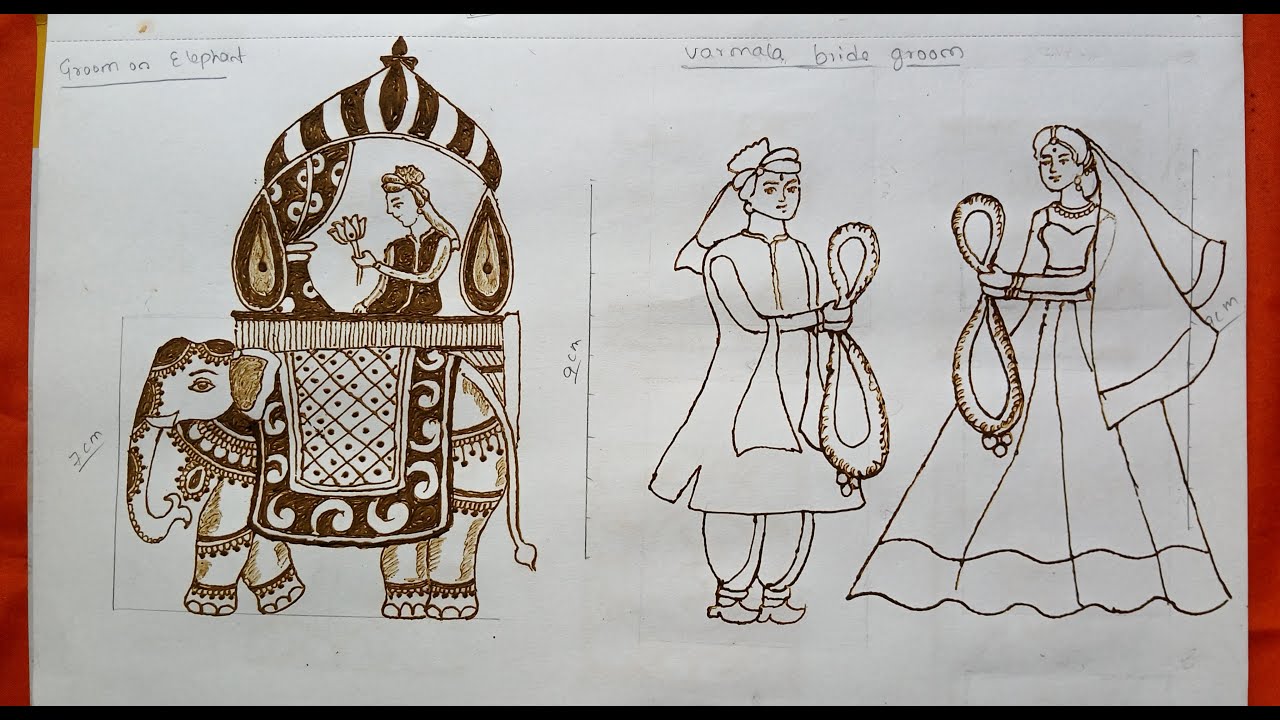 Groom on Elephant
varmala bride groom
9cm
7cm
9cm